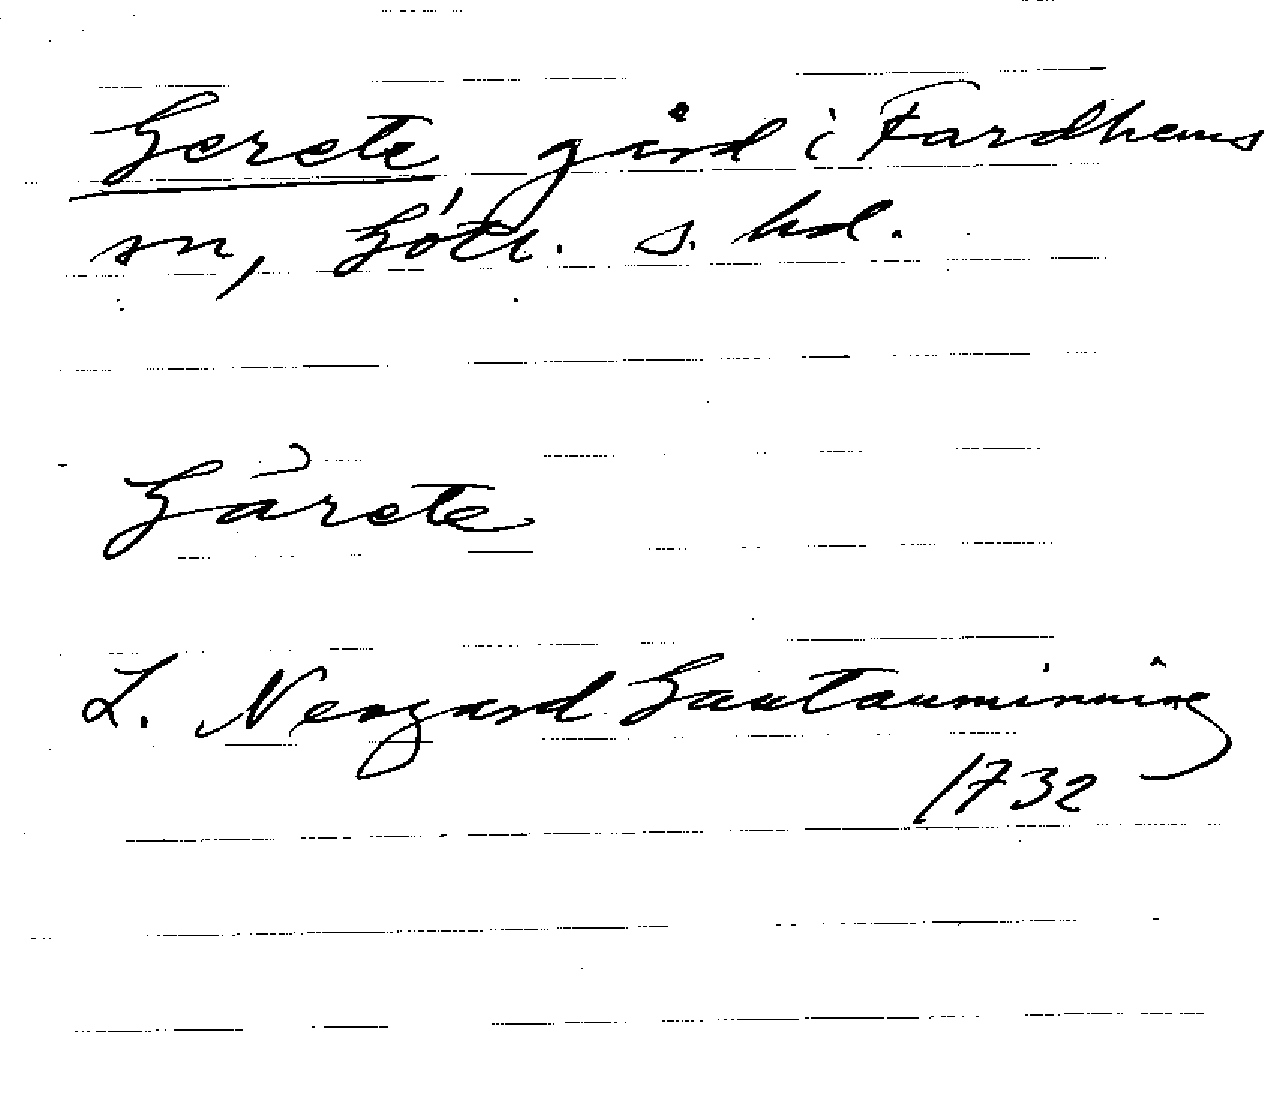 Gerete gård i Fardhems
sn, Götl. s. hd.
Gärete
L. Neogard Gautauminning
1732